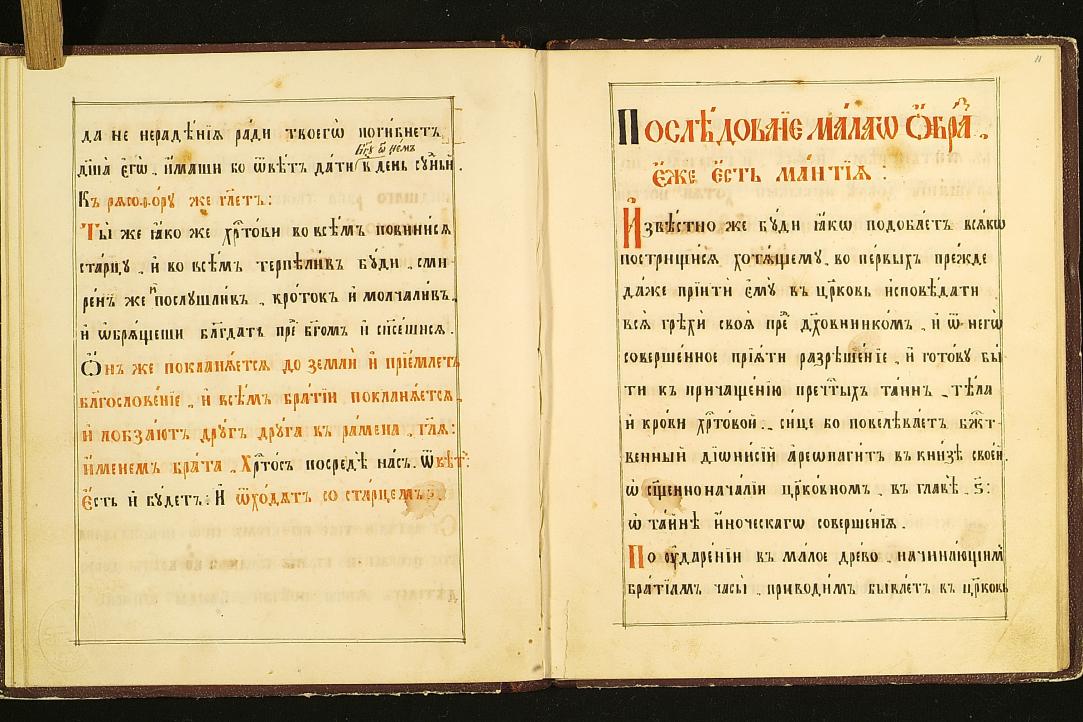 да не нерадѣ́нїѧ ра́ди твоегѡ̀ поги́бнетъ
дш҃а̀ є҆гѡ̀. и҆́маши бо ѿвѣ́тъ да́ти бг҃ꙋ ѡ҆ не́мъ в̾ де́нь сꙋ́дный.
Къ рѧсофо́рꙋ же гл҃етъ:
Ты́ же ꙗ҆́ко же хрⷭ҇то́ви во все́мъ повини́сѧ
ста́рцꙋ. и҆ во все́мъ терпѣли́въ бꙋ́ди. сми-
ре́нъ же и҆ послꙋшли́въ. кро́токъ и҆ молчали́въ.
и҆ ѡ҆брѧ́щеши блгⷣа́ть пред̾ бг҃омъ и҆ спⷭ҇е́шисѧ.
Ѻ҆́нъ же поклонѧ́етсѧ до землѝ и҆ прїе́млетъ
благослове́нїе. и҆ всѣ́мъ бра́тїи поклонѧ́етсѧ.
и҆ лобза́ютъ дрꙋ́гъ дрꙋ́га въ ра́мена. гл҃ѧ:
и҆́менемъ бра́та. Хрⷭ҇то́съ посредѣ̀ на́съ. Ѿвѣ́тъ:
Є҆́сть и҆ бꙋ́детъ: И҆ ѿхо́дѧтъ со ста́рцемъ.
11
Послѣ́дованїе ма́лагѡ ѻ҆́браза.
є҆́же є҆́сть ма́нтїѧ:
И҆звѣ́стно же бꙋ́ди ꙗ҆́кѡ подоба́етъ всѧ́кѡ
постри́щисѧ хотѧ́щемꙋ. во пе́рвыхъ пре́жде
да́же прїитѝ є҆мꙋ̀ въ цр҃ковь и҆сповѣ́дати
всѧ̀ грѣхѝ своѧ̀ пред̾ дꙋхо́вникомъ. и҆ ѿ негѡ̀
соверше́нное прїѧ́ти разрѣше́нїе. и҆ гото́вꙋ бы́-
ти къ причаще́нїю пречⷭ҇тыхъ та́инъ. тѣ́ла
и҆ кро́ви хрⷭ҇то́вой. си́це бо повелѣва́етъ бжⷭ҇т-
венный дїѡни́сїй а҆реѡпаги́тъ въ кни́зѣ свое́й.
ѡ҆ сщ҃енноначалїи цр҃ко́вномъ. въ главѣ̀. ѕ҃:
ѡ҆ та́йнѣ и҆́ноческагѡ соверше́нїѧ.
По ᲂу҆даре́нїи въ ма́лое дре́во. начина́ющимъ
бра́тїѧмъ часы̀. приводи́мъ быва́етъ въ цр҃ковь